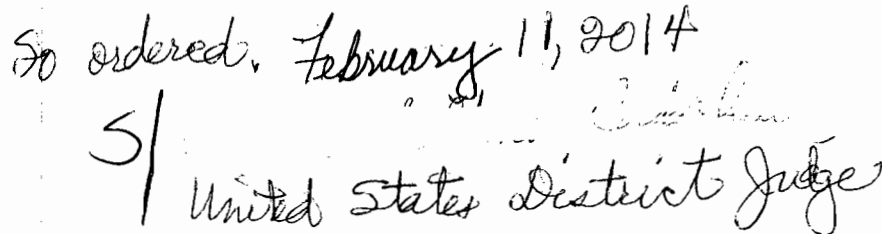 So ordered. February 11, 2014
S/
United States District Judge